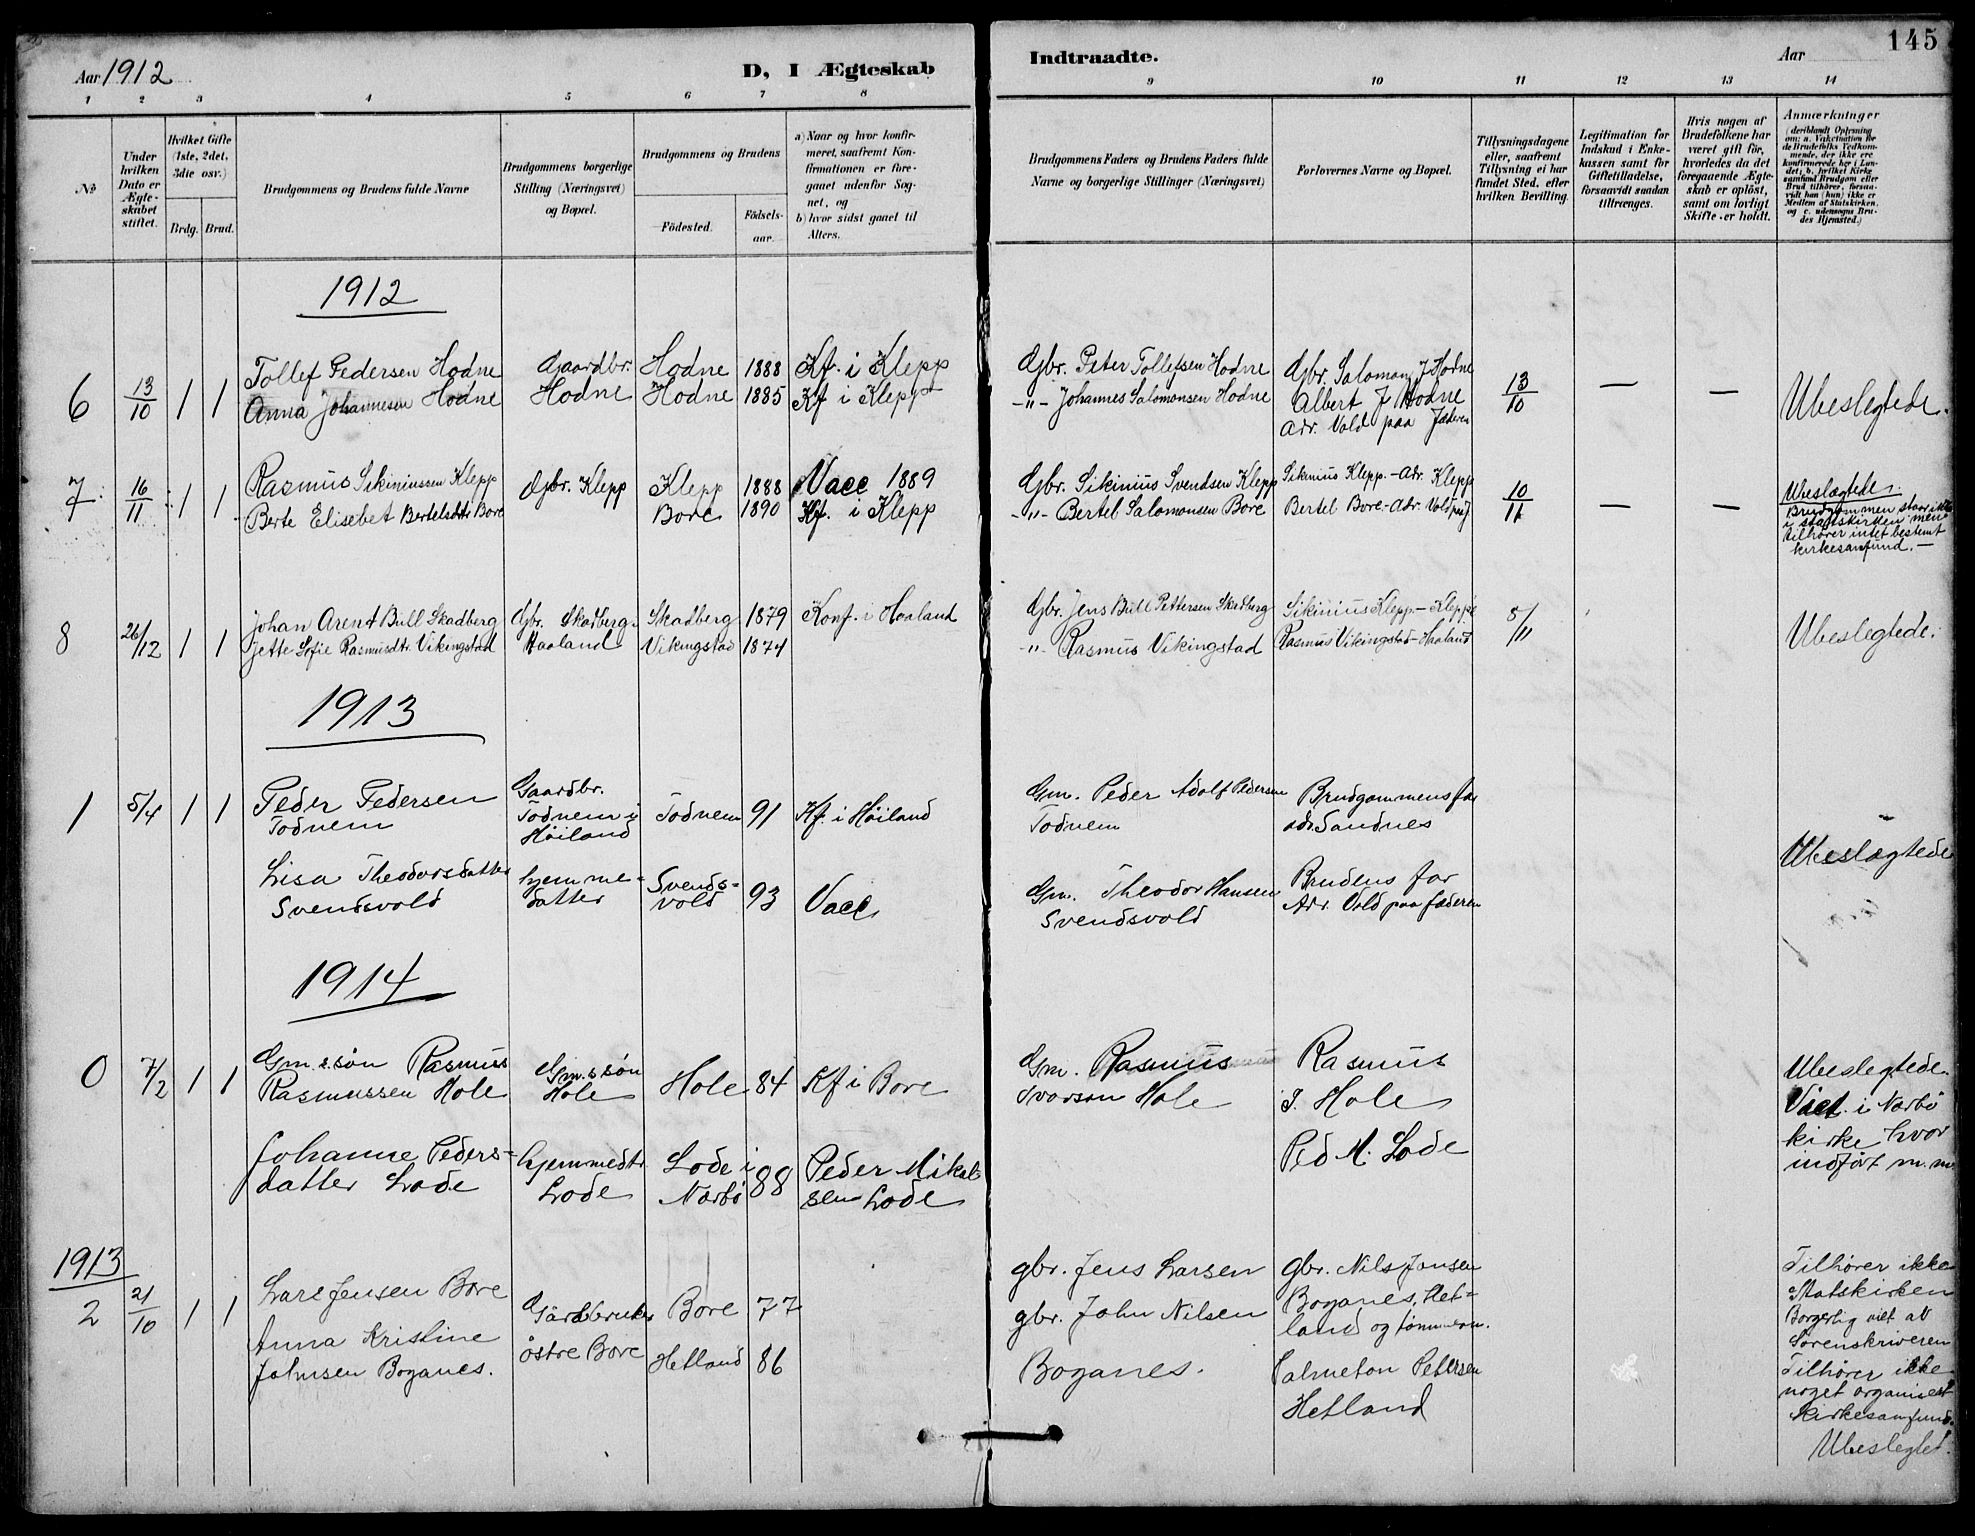 Aar 1912
D, I Ægteskab
Indtraadte.
Aar
145
1 2 3 4 5 6 7 8 9 10 11 12 13 14
No
Under hvilken Dato er Ægteskabet stiftet.
Hvilket Gifte (1ste, 2det, 3die osv.)
Brdg. Brud.
Brudgommens og Brudens fulde Navne
Brudgommens borgerlige Stilling (Næringsvei) og Bopæl.
Brudgommens og Brudens
Födested.
Födsels-aar.
a) Naar og hvor konfirmeret, saafremt Konfirmationen er foregaaet udenfor Sognet, og
b) hvor sidst gaaet til Alters.
Brudgommens Faders og Brudens Faders fulde Navne og borgerlige Stillinger (Næringsvei)
Forlovernes Navne og Bopæl.
Tillysningsdagene eller, saafremt Tillysning ei har fundet Sted, efter hvilken Bevilling.
Legitimation for Indskud i Enkekassen samt for Giftetilladelse, forsaavidt saadan tiltrænges.
Hvis nogen af Brudefolkene har været gift för, hvorledes da det foregaaende Ægteskab er oplöst, samt om lovligt Skifte er holdt.
Anmærkninger
(deriblandt Oplysning om: a. Vakcination for de Brudefolks Vedkommende, der ikke ere konfirmerede her i Landet; b. hvilket Kirkesamfund Brudgom eller Brud tilhörer, forsaavidt han (hun) ikke er Medlem af Statskirken, og c. udensogns Brudes Hjemsted.)
1912
6 13/10 1 1
Tollef Pedersen Hodne Gaardbr. Hodne 1888 Kf. i Klepp
Anna Johannesen Hodne Hodne Hodne 1885 Kf i Klepp
Gbr. Peter Tollefsen Hodne Gbr. Salomon J Hodne
-"- Johannes Salomonsen Hodne Albert J Hodne
Adr. Vold paa Jæderen
13/10 — — Ubeslegtede.
7. 16/11 1 1
Rasmus Sikiniussen Klepp Gbr. Klepp Klepp 1888 Vacc 1889
Berte Elisebet Bertelsdtr Bore Bore 1890 Kf. i Klepp
Gbr. Sikinius Svendsen Klepp Sikinius Klepp.- Adr. Klepp
-"- Bertel Salomonsen Bore Bertel Bore - Adr. Vold paa J
10/11 — —
Ubeslægtede.
Brudgommen staar ikke
i statskirken men
tilhører intet bestemt
kirkesamfund. —
8 26/12 1 1
Johan Arent Bull Skadberg Gbr. Skadberg. Skadberg 1879 Konf. i Haaland
Jette Sofie Rasmusdtr. Vikingstad Haaland Vikingstad 1874
Gbr. Jens Bull Pettersen Skadberg Sikinius Klepp - Kleppe
-"- Rasmus Vikingstad Rasmus Vikingstad - Haaland
5/11 Ubeslegtede.
1913
1 5/4 1 1
Peder Pedersen
Todnem
Gaardbr.
Todnem i
Höiland
Todnem 91 Kf. i Höiland
Gm. Peder Adolf Pedersen
Todnem
Brudgommens far
adr Sandnes
Lisa Theodorsdatter
Svendsvold
hjemme-
datter
Svends-
vold 93 Vacc.
Gm. Theodor Hansen
Svendsvold
Brudens far
Adr. Vold paa Jæderen
Ubeslægtede
1914
0 7/2 1 1
Gm.s.søn Rasmus
Rasmussen Hole
Gm.s søn
Hole
Hole 84 Kf i Bore
Gm. Rasmus
Ivarson Hole
Rasmus
I. Hole
Ped M. Lode
Johanne Peders-
datter Lode
hjemmedtr
Lode
Lode i
Nærbö 88 Peder Mikal
sen Lode
Ubeslegtede.
Viet i Nærbö
kirke hvor
indfört m.m.
1913
2 21/10 1 1
Lars Jensen Bore
Gårdbruker Bore 77
Anna Kristine
Johnsen Boganes.
östre Bore Hetland 86
gbr. Jens Larsen
gbr. John Nilsen
Boganes.
gbr. Nils Jonsen
Boganes, Het-
land og
Petersen
Hetland
Tilhører ikke
Statskirken
Borgerlig viet av
Sorenskriveren
Tilhører ikke
noget organisert
kirkesamfund.
Ubeslegtet.